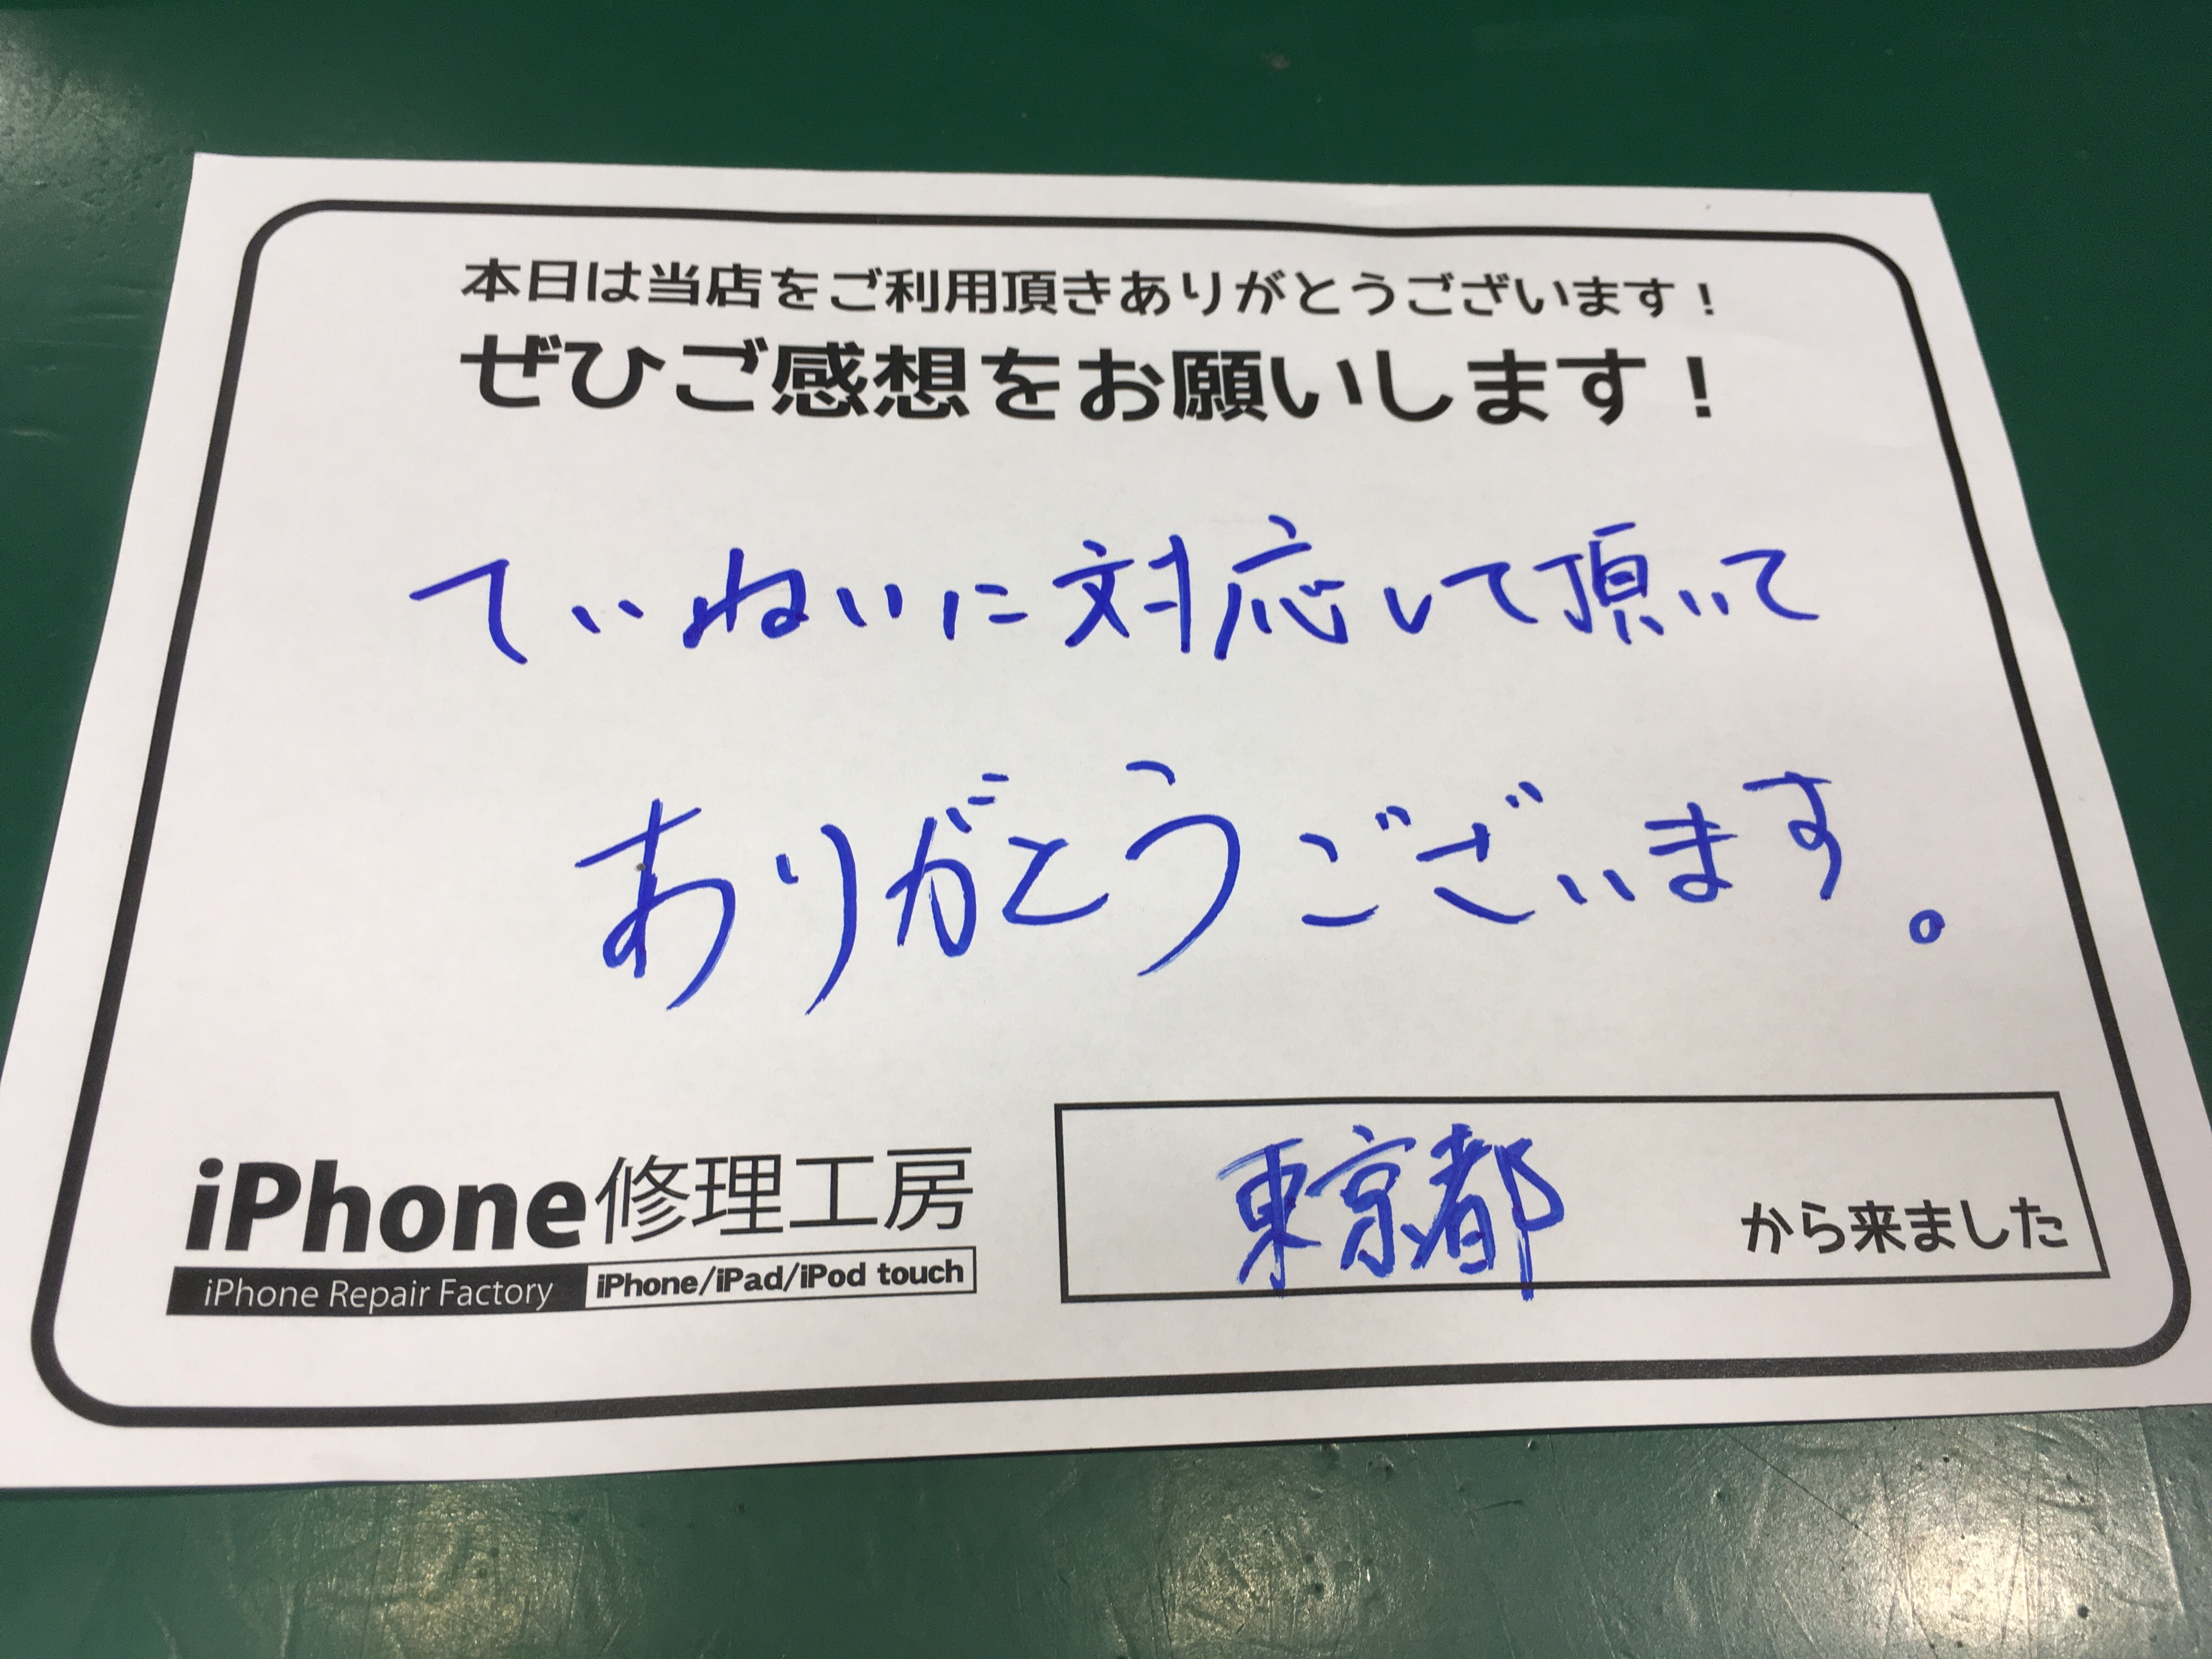 本日は当店をご利用頂きありがとうございます！
ぜひご感想をお願いします！
ていねいに対応して頂いて
ありがとうございます。
iPhone修理工房
iPhone Repair Factory iPhone/iPad/iPod touch
東京都 から来ました